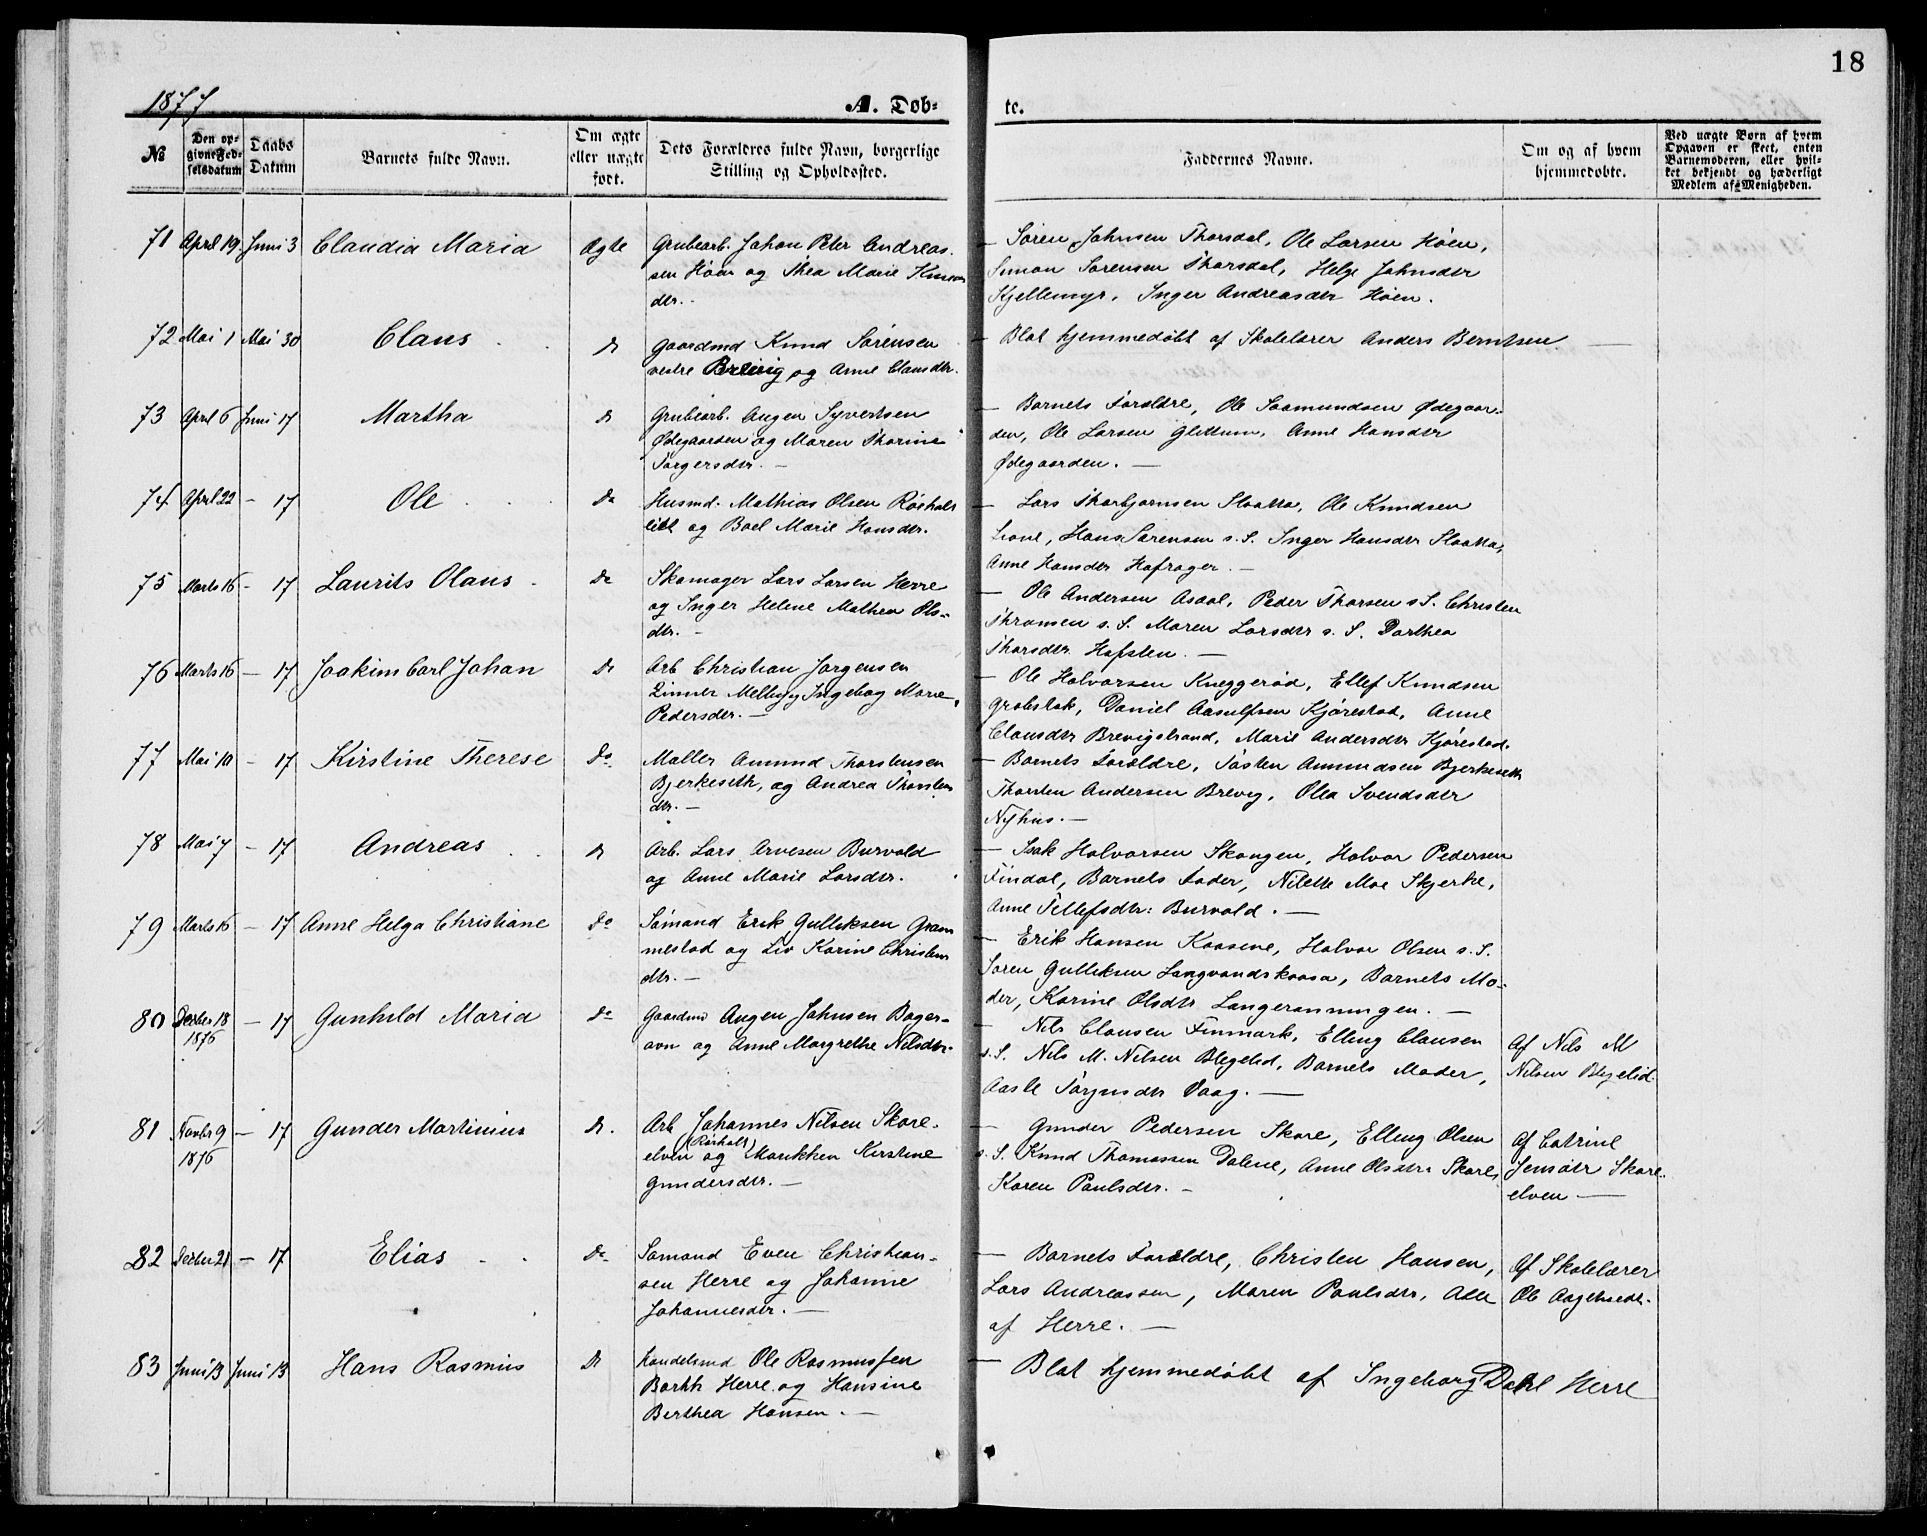 18
1877
A. Døb=
te.
№
Den op-
givne Fød-
selsdatum
Daabs
Datum
Barnets fulde Navn.
Om ægte
eller uægte
født.
Dets Forældres fulde Navn, borgerlige
Stilling og Opholdssted.
Faddernes Navne.
Om og af hvem
hjemmedøbte.
Ved uægte Børn af hvem
Opgaven er skeet, enten
Barnemoderen, eller hvil-
ket bekjendt og hæderligt
Medlem af Menigheden.
71 April 19. Juni 3 Claudia Maria Ægte
Grubearb. Johan Peter Andreas
sen Høen og Thea Marie
dtr.
— Søren Johnsen Thorsdal, Ole Larsen Høen,
Simon Sørensen Thorsdal, Helge Johnsdtr
Kjellemyr, Inger Andreasdtr Høen.
72 Mai 1 Mai 30 Claus
Gaardmd Knud Sørensen
vestre Brevig og Anne Clausdtr.
— Blot hjemmedøbt af Skolelærer Anders Berntsen —
73 April 6 Juni 17 Martha
Grubearb. Augen Syvertsen
Ødegaarden og Maren Thorine
Torgersdtr. —
— Barnets Forældre, Ole Saamundsen Ødegaar-
den, Ole Larsen Glittum, Anne Hansdtr
Ødegaarden. —
74 April 22 — 17 Ole Do
Husmd. Mathias Olsen Røsholt
lill og Boel Marie Hansdtr.
— Lars Thorbjørnsen Slaatta, Ole Knudsen
Hans Sørensen s. S. Inger Hansdtr Slaatta,
Anne Hansdtr Hafrager. —
75 Marts 16 — 17 Laurits Olaus Do
Skomager Lars Larsen Herre
og Inger Helene Mathea Ols-
dtr. —
— Ole Andersen Asdal, Peder Thorsen s. S. Christen
s. S. Maren Larsdtr s. S. Dorthea
Thorsdtr Hafsten. —
76 Marts 16 — 17 Joakim Carl Johan Do
Arb Christian Jørgensen
Ingebog Marie
Pedersdtr. —
— Ole Halvorsen Kneggerød, Ellef Knudsen
Grobstok, Daniel Aasulfsen Kjørestad, Anne
Clausdtr Brevigstrand, Marie Andersdtr Kjørestad.
77 Mai 10 — 17 Kirstine Therese Do
Møller Amund Thorstensen
Bjerkeseth, og Andrea Thorstens
dtr. —
— Barnets Forældre, Tosten Amundsen Bjerkeseth
Thorsten Andersen Brevig, Olea Svendsdtr
Nyhus. —
78 Mai 7 — 17 Andreas
Arb. Lars Arvesen Burvald
og Anne Marie Larsdtr.
— Isak Halvorsen Skougen, Halvor Pedersen
Findal, Barnets Fader, Nilette Moe Skjerke,
Anne Tellefsdtr: Burvald. —
79 Marts 16 — 17 Anne Helga Christiane Do
Sømand Erik Gulliksen Gram
mestad og Liv Karine Christens
dtr. —
— Erik Hansen Kaasene, Halvor Olsen s. S.
Søren Gulliksen Langvandskaasa, Barnets Mo-
der, Karine Olsdtr Langerønningen. —
80 Decber 18 — 17 Gunhild Maria Do
1876
Gaardmd Augen Johnsen Bager-
ovn og Anne Margrethe Nilsdtr.
— Nils Clausen Finmark, Elling Clausen
s. S. Nils M. Nilsen Blegelid, Barnets Moder,
Aasle Vaag. —
Af Nils M
Nilsen Blegelid.
81 Novbr 9 — 17 Gunder Martinius Do.
1876
Arb Johannes Nilsen Skare-
(Røsholt)
elven og Marikken Kirstine
Gundersdtr. —
— Gunder Pedersen Skare, Elling Olsen
s. S. Knud Thomassen Dalene, Anne Olsdtr Skare,
Karen Paulsdtr. —
Af Catrine
Jensdtr Skare-
elven —
82 Decbr 21 — 17 Elias Do
Sømand Even Christian-
sen Herre og Johanne
Johannesdtr. —
— Barnets Forældre, Christen Hansen,
Lars Andreassen, Maren Paulsdtr, Alle
af Herre. —
Af Skolelærer
Ole
83 Juni 13 Juni 13 Hans Rasmus
Handelsmd Ole Rasmussen
Herre og Hansine
Berthea Hansen. —
— Blot hjemmedøbt af Ingeborg Dahl Herre